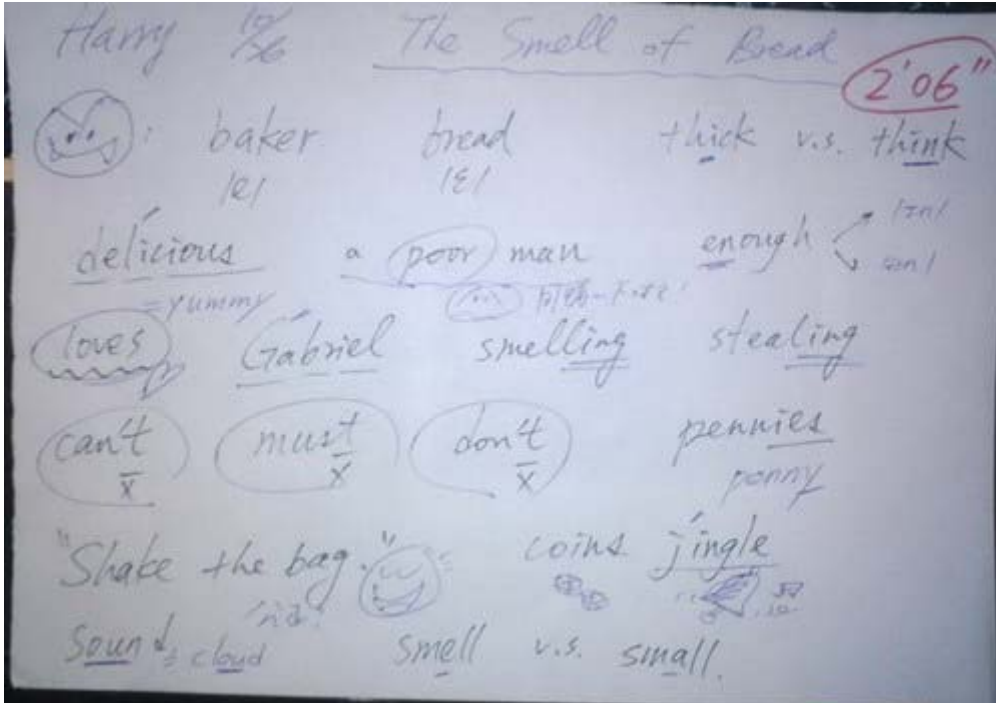 Harry 10/6 The Smell of Bread
2'06"
: baker bread thick v.s. think
/e/ /ɛ/
delicious a poor man enough
=yummy
loves Gabriel smelling stealing
can't must don't pennies
x x x penny
"Shake the bag." coins jingle
sound = cloud smell v.s. small.